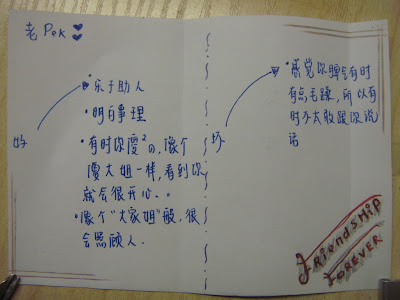 老 Pek ♥♥
好
• 乐于助人
• 明白事理
• 有时你傻²的,像个
傻大姐一样,看到你
就会很开心。。
• 像个“大家姐”般,很
会照顾人.
坏
• 感觉你脾气有时
有点毛躁,所以有
时不太敢跟你说
话
Friendship
FOREVER